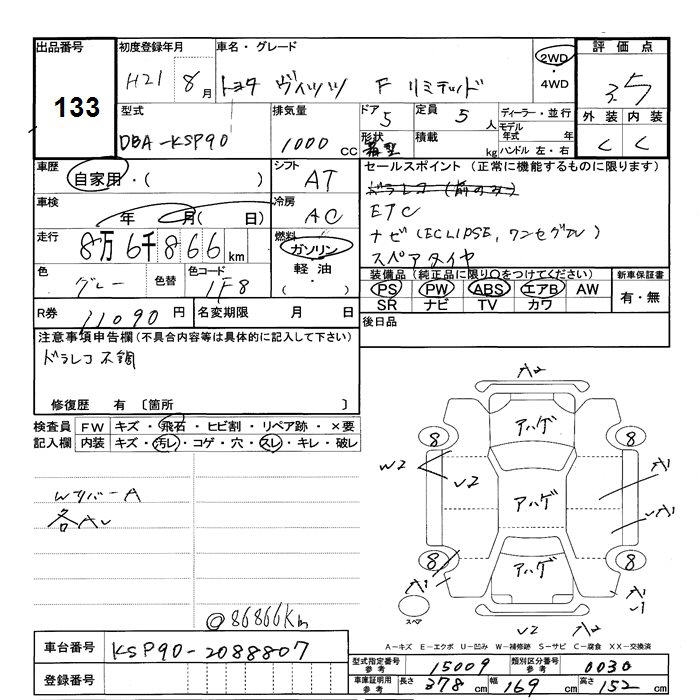 出品番号 初度登録年月 車名・グレード 評価点
133 H21 8月 トヨタ ヴィッツ F リミテッド 2WD・4WD 3.5
型式 排気量 ドア 定員 ディーラー・並行 外装 内装
DBA-KSP90 1000cc 5 5人 モデル年式 年 C C
形状 積載 kg ハンドル 左・右
車歴 シフト セールスポイント(正常に機能するものに限ります)
自家用・( ) AT ドラレコ(前のみ)
車検 冷房 ETC
年 月( 日) AC ナビ(ECLIPSE, ワンセグTV)
走行 燃料 スペアタイヤ
8万6千866km ガソリン
軽油
・( )
色 色替 色コード 装備品(純正品に限り○をつけてください) 新車保証書
グレー 1F8 PS PW ABS エアB AW 有・無
SR ナビ TV カワ
R券 11090円 名変期限 月 日 後日品
注意事項申告欄(不具合内容等は具体的に記入して下さい)
ドラレコ不調
修復歴 有 〔箇所 〕
検査員 FW キズ・飛石・ヒビ割・リペア跡・×要
記入欄 内装 キズ・汚レ・コゲ・穴・スレ・キレ・破レ
WツバーA
各AU
@86866Km
A2
アハゲ
8 8
W2 U2 A1
アハゲ
U1
アハゲ
8 8
A1 A1
U1
スペア
U2 A2
A-キズ E-エクボ U-凹み W-補修跡 S-サビ C-腐食 XX-交換済
車台番号 KSP90-2088807
型式指定番号 参考 15009 類別区分番号 参考 0030
登録番号
車庫証明用 参考 長さ 378cm 幅 169cm 高さ 152cm